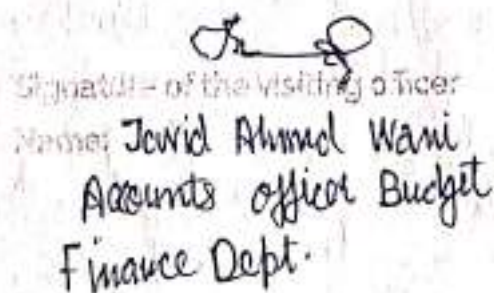 Signature of the visiting officer
Name: Javid Ahmad Wani
Accounts officer Budget
Finance Dept.